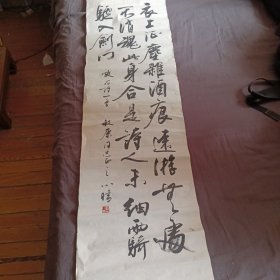 衣上征尘雜酒痕遠游無處
不消魂此身合是詩人未細雨騎
驢入劍門